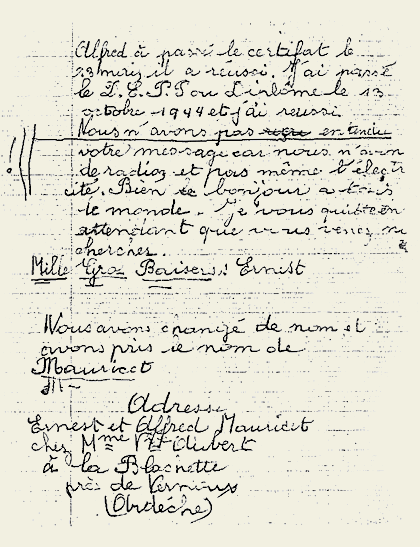 Alfred à passé le certifat le
23 mois il a reussi. J'ai passé
le D.E.P.P ou dixième le 13
octobre 1944 et j'ai reussi.
Nous n'avons pas entendu
votre message car nous n'avon
de radios et pas même l'électr
ité. Bien le bonjour a tous
le monde. Je vous quitte en
attendant que vous venez me
chercher.
Mille Gros Baisers: Ernest
Nous avons changé de nom et
avons pris le nom de
Mauricet
Adresse
Ernest et Alfred Mauricet
chez Mme Vve Aubert
à la Blachette
près de Vernoux
(Ardèche)